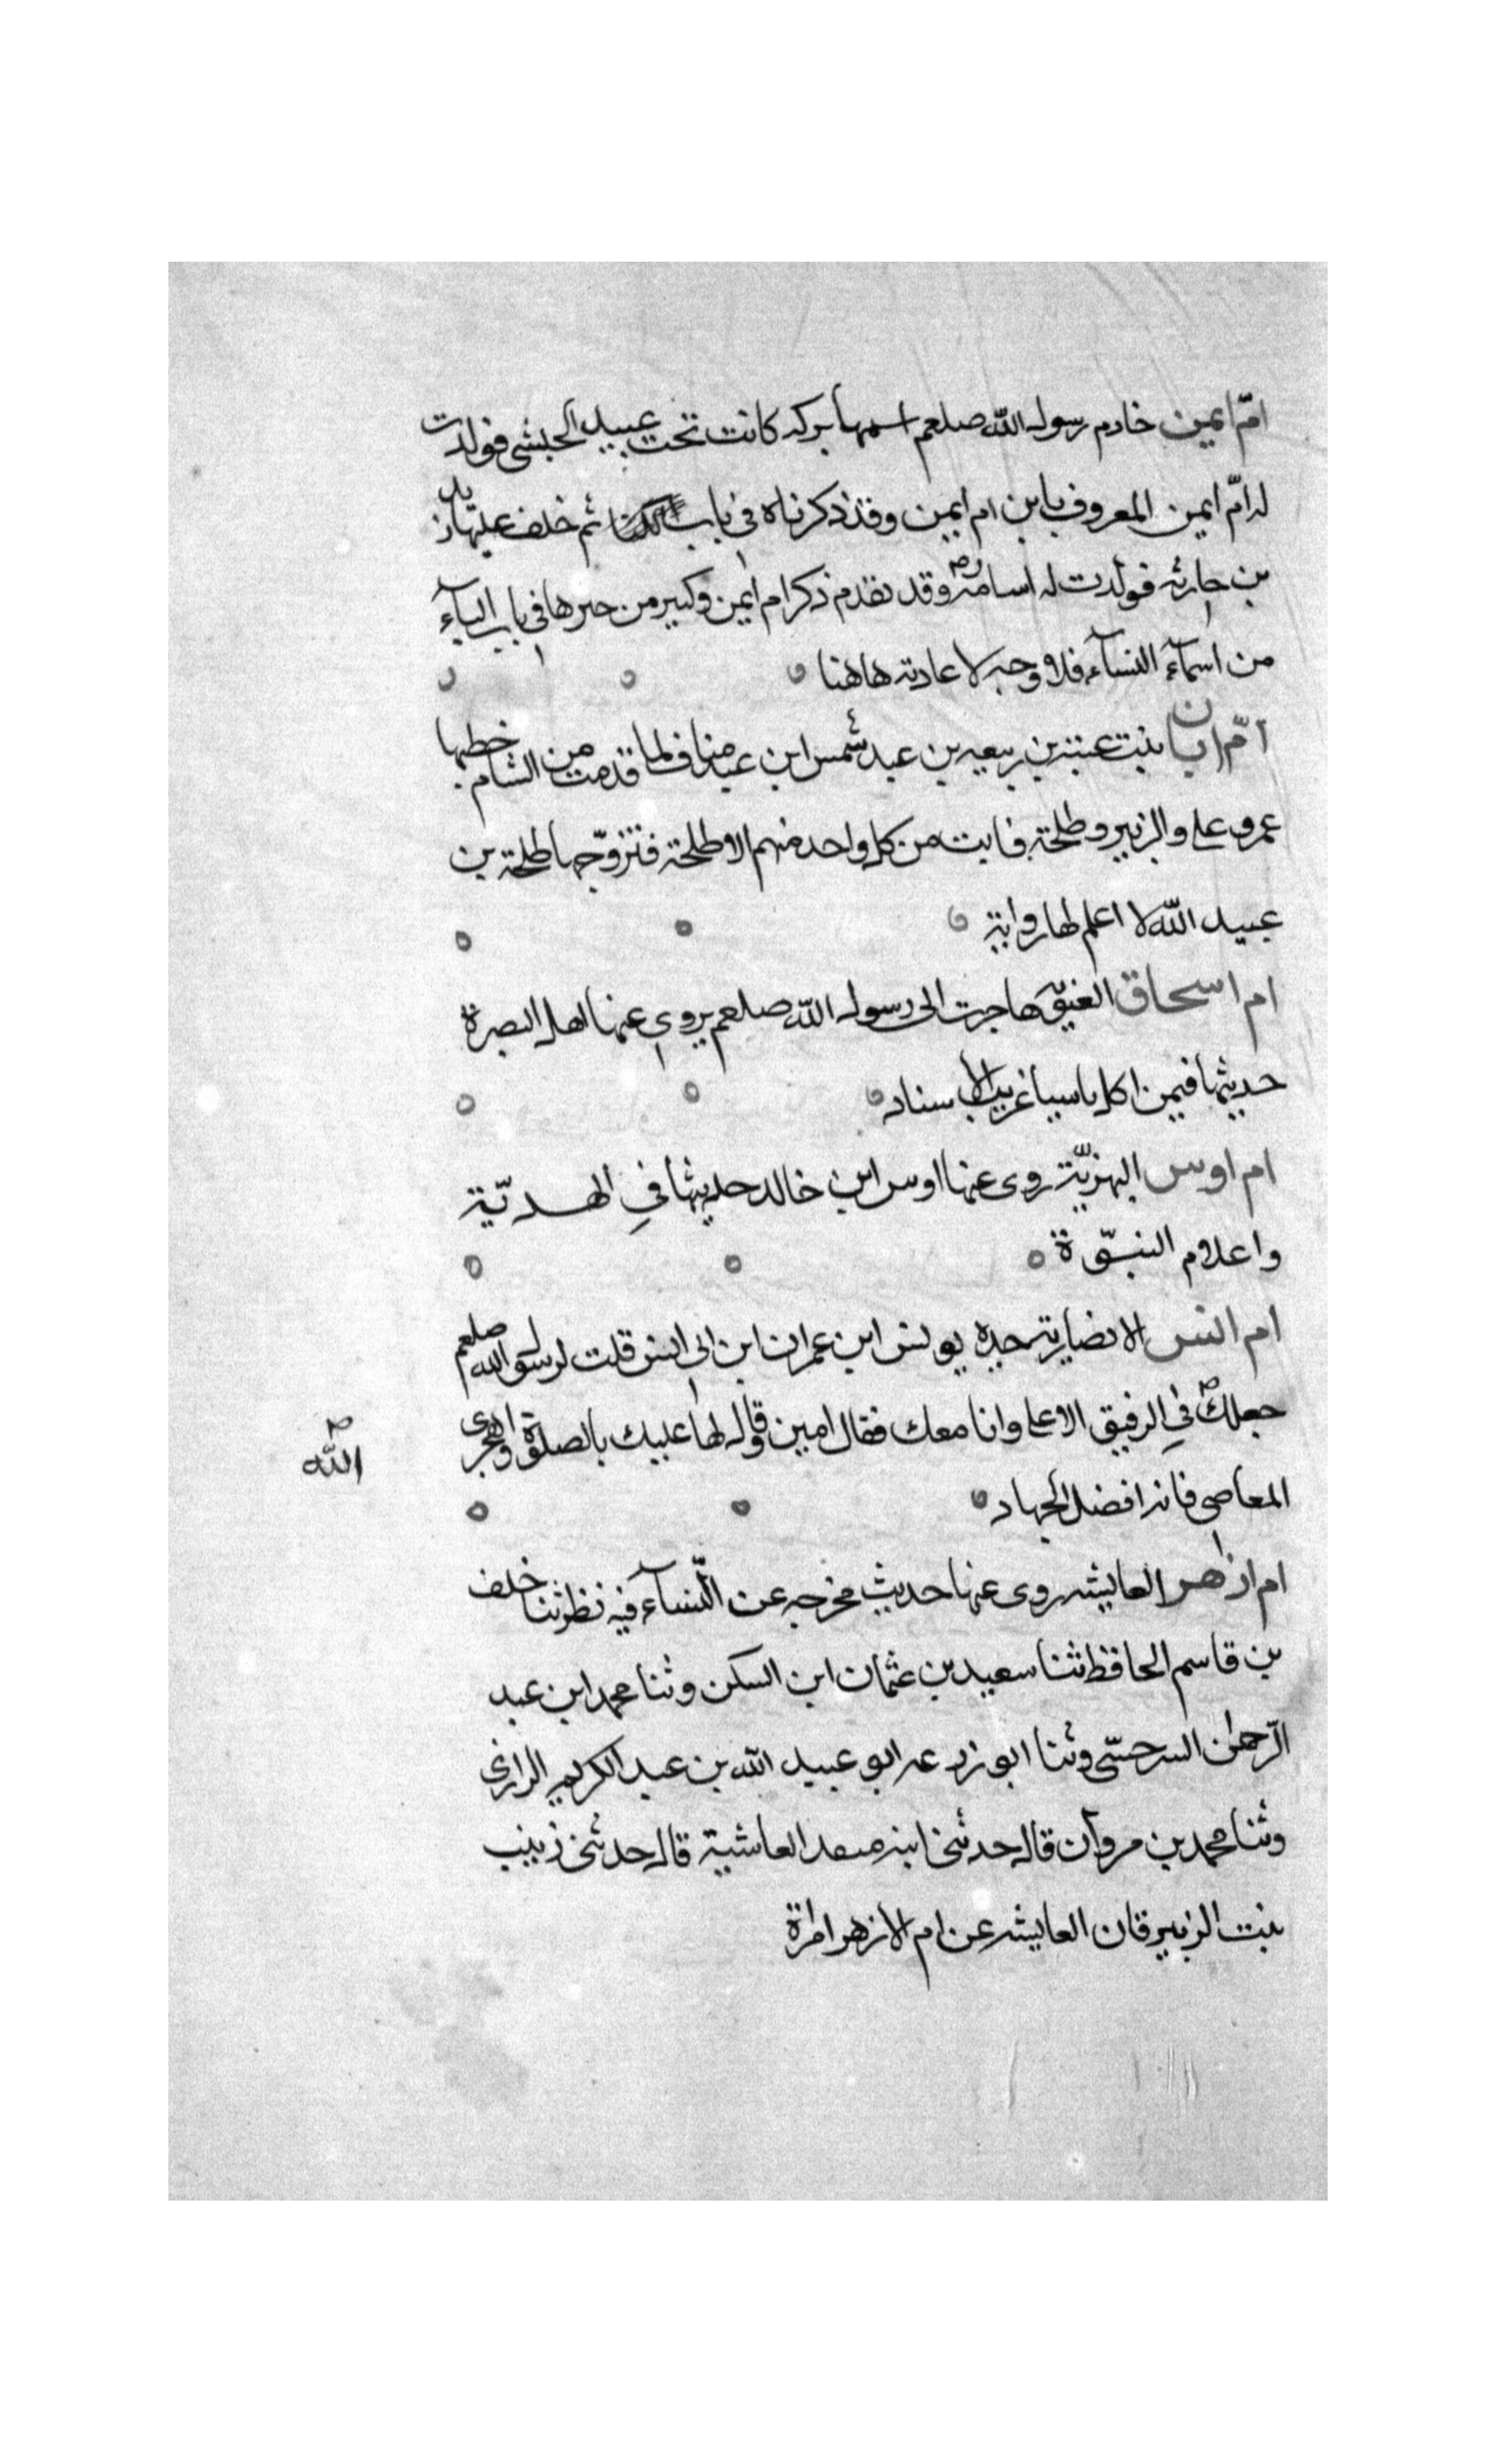 امّ ايمن خادم رسول الله صلعم اسمها بركه كانت تحت عبيد الحبشى فولدت
له امّ ايمن المعروف بابن ام ايمين وقد ذكرناه فى باب ثم خلف عليها زيد
بن حارثه فولدت له اسامة رض وقد تقدم ذكر ام ايمن وكبير من خبرها فى باب الباء
من اسمآء النسآء فلا وجه لاعادته هاهنا
امّ ابان بنت عتبة بن ربيعه بن عبد شمس ابن عبد مناف لما قدمت من الشام خطبها
عمر وعلى والزبير وطلحة فابت من كل واحد منهم الا طلحة فتزوّجها طلحة بن
عبيد الله لا اعلم لها رواية
ام اسحاق الغنوية هاجرت الى رسول الله صلعم يروى عنها اهل البصرة
حديثها فيمن اكل ناسيا غريب الاسناد
ام اوس البهزيّة روى عنها اوس ابن خالد حديثها فى الهديّة
واعلام النبّوة
ام انس الانصارية جده يونس ابن عمران ابن ابى انس قلت لرسول الله صلعم
جعلك فى الرفيق الاعلا وانا معك فقال امين وقال لها عليك بالصلوة واهجرى
الله
المعاصى فانه افضل الجهاد
ام ازهر العايشه روى عنها حديث مخرجه عن النسآء فيه نظر ثنا خلف
بن قاسم الحافظ ثنا سعيد بن عثمان ابن السكن وثنا محمد ابن عبد
الرّحمن السرخسّى وثنا ابو زرعه ابو عبيد الله بن عبد الكريم الرازى
وثنا محمد بن مروان قال حدثنى ابنه العاشية قال حدثنى زينب
بنت الزبيرقان العايشه عن ام الازهر امراة